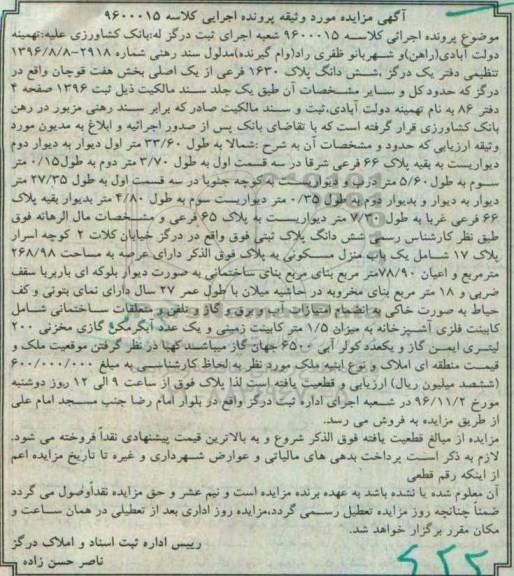 آگهی مزایده مورد وثیقه پرونده اجرایی کلاسه ۹۶۰۰۰۱۵
موضوع پرونده اجرائی کلاسه ۹۶۰۰۰۱۵ شعبه اجرای ثبت درگز له:بانک کشاورزی علیه:تهمینه
دولت آبادی(راهن)و شهربانو ظفری راد(وام گیرنده)مدلول سند رهنی شماره ۲۹۱۸-۱۳۹۶/۸/۸
تنظیمی دفتر یک درگز ،شش دانگ پلاک ۱۶۳۰ فرعی از یک اصلی بخش هفت قوچان واقع در
درگز که حدود کل و سایر مشخصات آن طبق یک جلد سند مالکیت ذیل ثبت ۱۳۹۶ صفحه ۴
دفتر ۸۶ به نام تهمینه دولت آبادی،ثبت و سند مالکیت صادر که برابر سند رهنی مزبور در رهن
بانک کشاورزی قرار گرفته است که با تقاضای بانک پس از صدور اجرائیه و ابلاغ به مدیون مورد
وثیقه ارزیابی که حدود و مشخصات آن به شرح :شمالا به طول ۳۳/۶۰ متر اول دیوار به دیوار دوم
دیواریست به بقیه پلاک ۶۶ فرعی شرقا در سه قسمت اول به طول ۳/۷۰ متر دوم به طول ۰/۱۵ متر
سوم به طول ۵/۶۰ متر درب و دیواریست به کوچه جنوبا در سه قسمت اول به طول ۲۷/۳۵ متر
دیوار به دیوار و بدیوار دوم به طول ۰/۳۵ متر دیواریست سوم به طول ۴/۸۰ متر بدیوار بقیه پلاک
۶۶ فرعی غربا به طول ۷/۳۰ متر دیواریست به پلاک ۶۵ فرعی و مشخصات مال الرهانه فوق
طبق نظر کارشناس رسمی شش دانگ پلاک ثبتی فوق واقع در درگز خیابان کلات ۲ کوچه اسرار
پلاک ۱۷ شامل یک باب منزل مسکونی به پلاک فوق الذکر دارای عرصه به مساحت ۲۶۸/۹۸
مترمربع و اعیان ۷۸/۹۰متر مربع بنای مربع بنای ساختمانی به صورت دیوار بلوکه ای باربربا سقف
ضربی و ۱۸ متر مربع بنای مخروبه در حاشیه میلان با طول عمر ۲۷ سال دارای نمای بتونی و کف
حیاط به صورت خاکی به انضمام امتیازات آب و برق و گاز و تلفن و متعلقات ساختمانی شامل
کابینت فلزی آشپزخانه به میزان ۱/۵ متر کابینت زمینی و یک عدد آبگرمکن گازی مخزنی ۲۰۰
لیتری ایمن گاز و یکعدد کولر آبی ۶۵۰۰ جهان گاز میباشند کهبا در نظر گرفتن موقعیت ملک و
قیمت منطقه ای املاک و نوع ابنیه ملک مورد نظر به لحاظ کارشناسی به مبلغ ۶۰۰/۰۰۰/۰۰۰
(ششصد میلیون ریال) ارزیابی و قطعیت یافته است لذا پلاک فوق از ساعت ۹ الی ۱۲ روز دوشنبه
مورخ ۹۶/۱۱/۲ در شعبه اجرای اداره ثبت درگز واقع در بلوار امام رضا جنب مسجد امام علی
از طریق مزایده به فروش می رسد.
مزایده از مبالغ قطعیت یافته فوق الذکر شروع و به بالاترین قیمت پیشنهادی نقداً فروخته می شود.
لازم به ذکر است پرداخت بدهی های مالیاتی و عوارض شهرداری و غیره تا تاریخ مزایده اعم
از اینکه رقم قطعی
آن معلوم شده یا نشده باشد به عهده برنده مزایده است و نیم عشر و حق مزایده نقداًوصول می گردد
ضمناً چنانچه روز مزایده تعطیل رسمی گردد،مزایده روز اداری بعد از تعطیلی در همان ساعت و
مکان مقرر برگزار خواهد شد.
رییس اداره ثبت اسناد و املاک درگز
ناصر حسن زاده